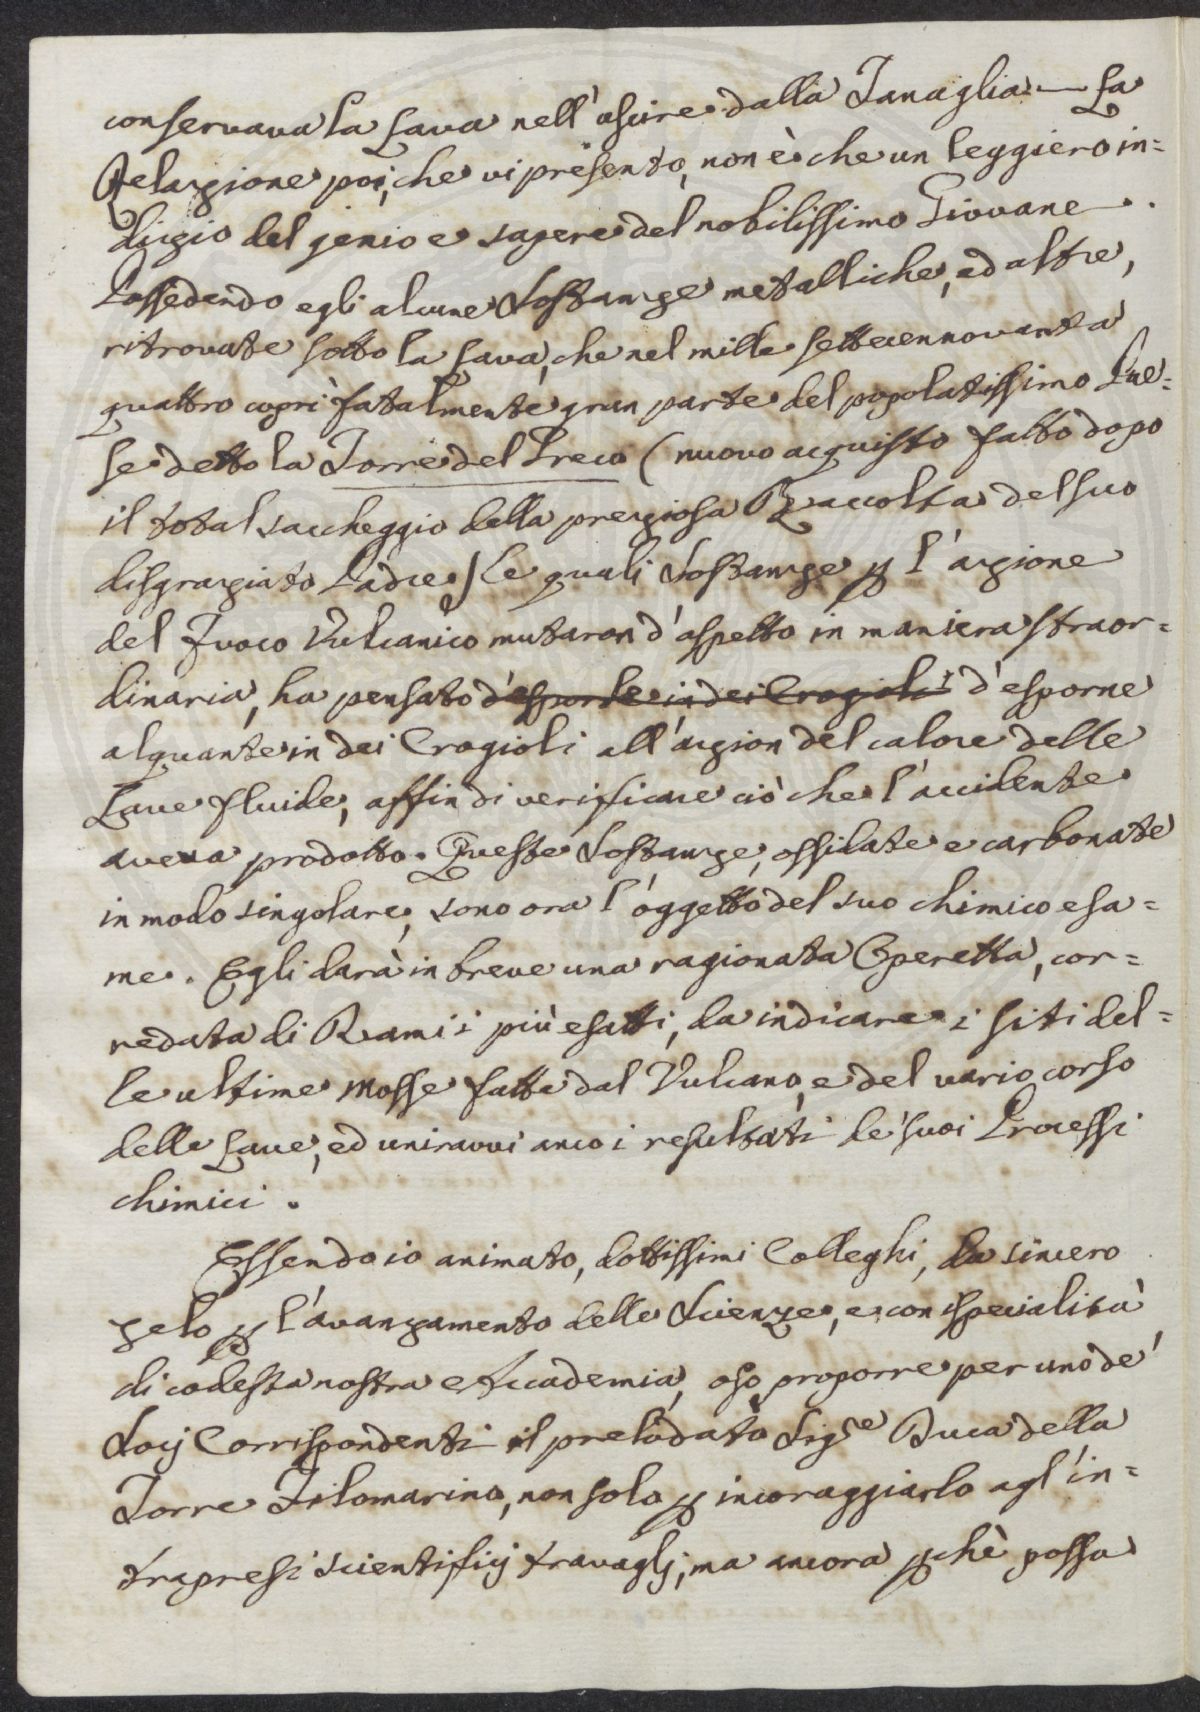 conservava la Lava nell'uscire dalla Tanaglia — La
Relazione poi, che vi presento, non è che un leggiero in=
dizio del genio e sapere del nobilissimo Giovane.
Possedendo egli alcune Sostanze metalliche, ed altre,
ritrovate sotto la Lava, che nel mille settecennovanta
quattro coprì fatalmente gran parte del popolatissimo Pae=
se detto la Torre del Greco (nuovo acquisto fatto dopo
il total saccheggio della preziosa Raccolta del suo
disgraziato Padre) le quali Sostanze p l'azione
del Fuoco Vulcanico mutaron d'aspetto in maniera straor=
dinaria, ha pensato d'esporle in dei Crogioli d'esporne
alquante in dei Crogioli all'azion del calore delle
Lave fluide, affin di verificare ciò che l'accidente
aveva prodotto. Queste Sostanze, ossidate e carbonate
in modo singolare, sono ora l'oggetto del suo chimico esa=
me. Egli darà in breve una ragionata Operetta, cor=
redata di Rami i più esatti, da indicare i siti del=
le ultime mosse fatte dal Vulcano, e del vario corso
delle Lave, ed uniravvi anco i resultati de' suoi Processi
chimici.
Essendo io animato, dottissimi Colleghi, da sincero
zelo p l'avanzamento delle Scienze, e con ispecialità
di codesta nostra Accademia, oso proporre per uno de'
Socj Corrispondenti il prelodato Sig.re Duca della
Torre Filomarino, non solo p incoraggiarlo agl'in=
trapresi scientifici travaglj, ma ancora pchè possa